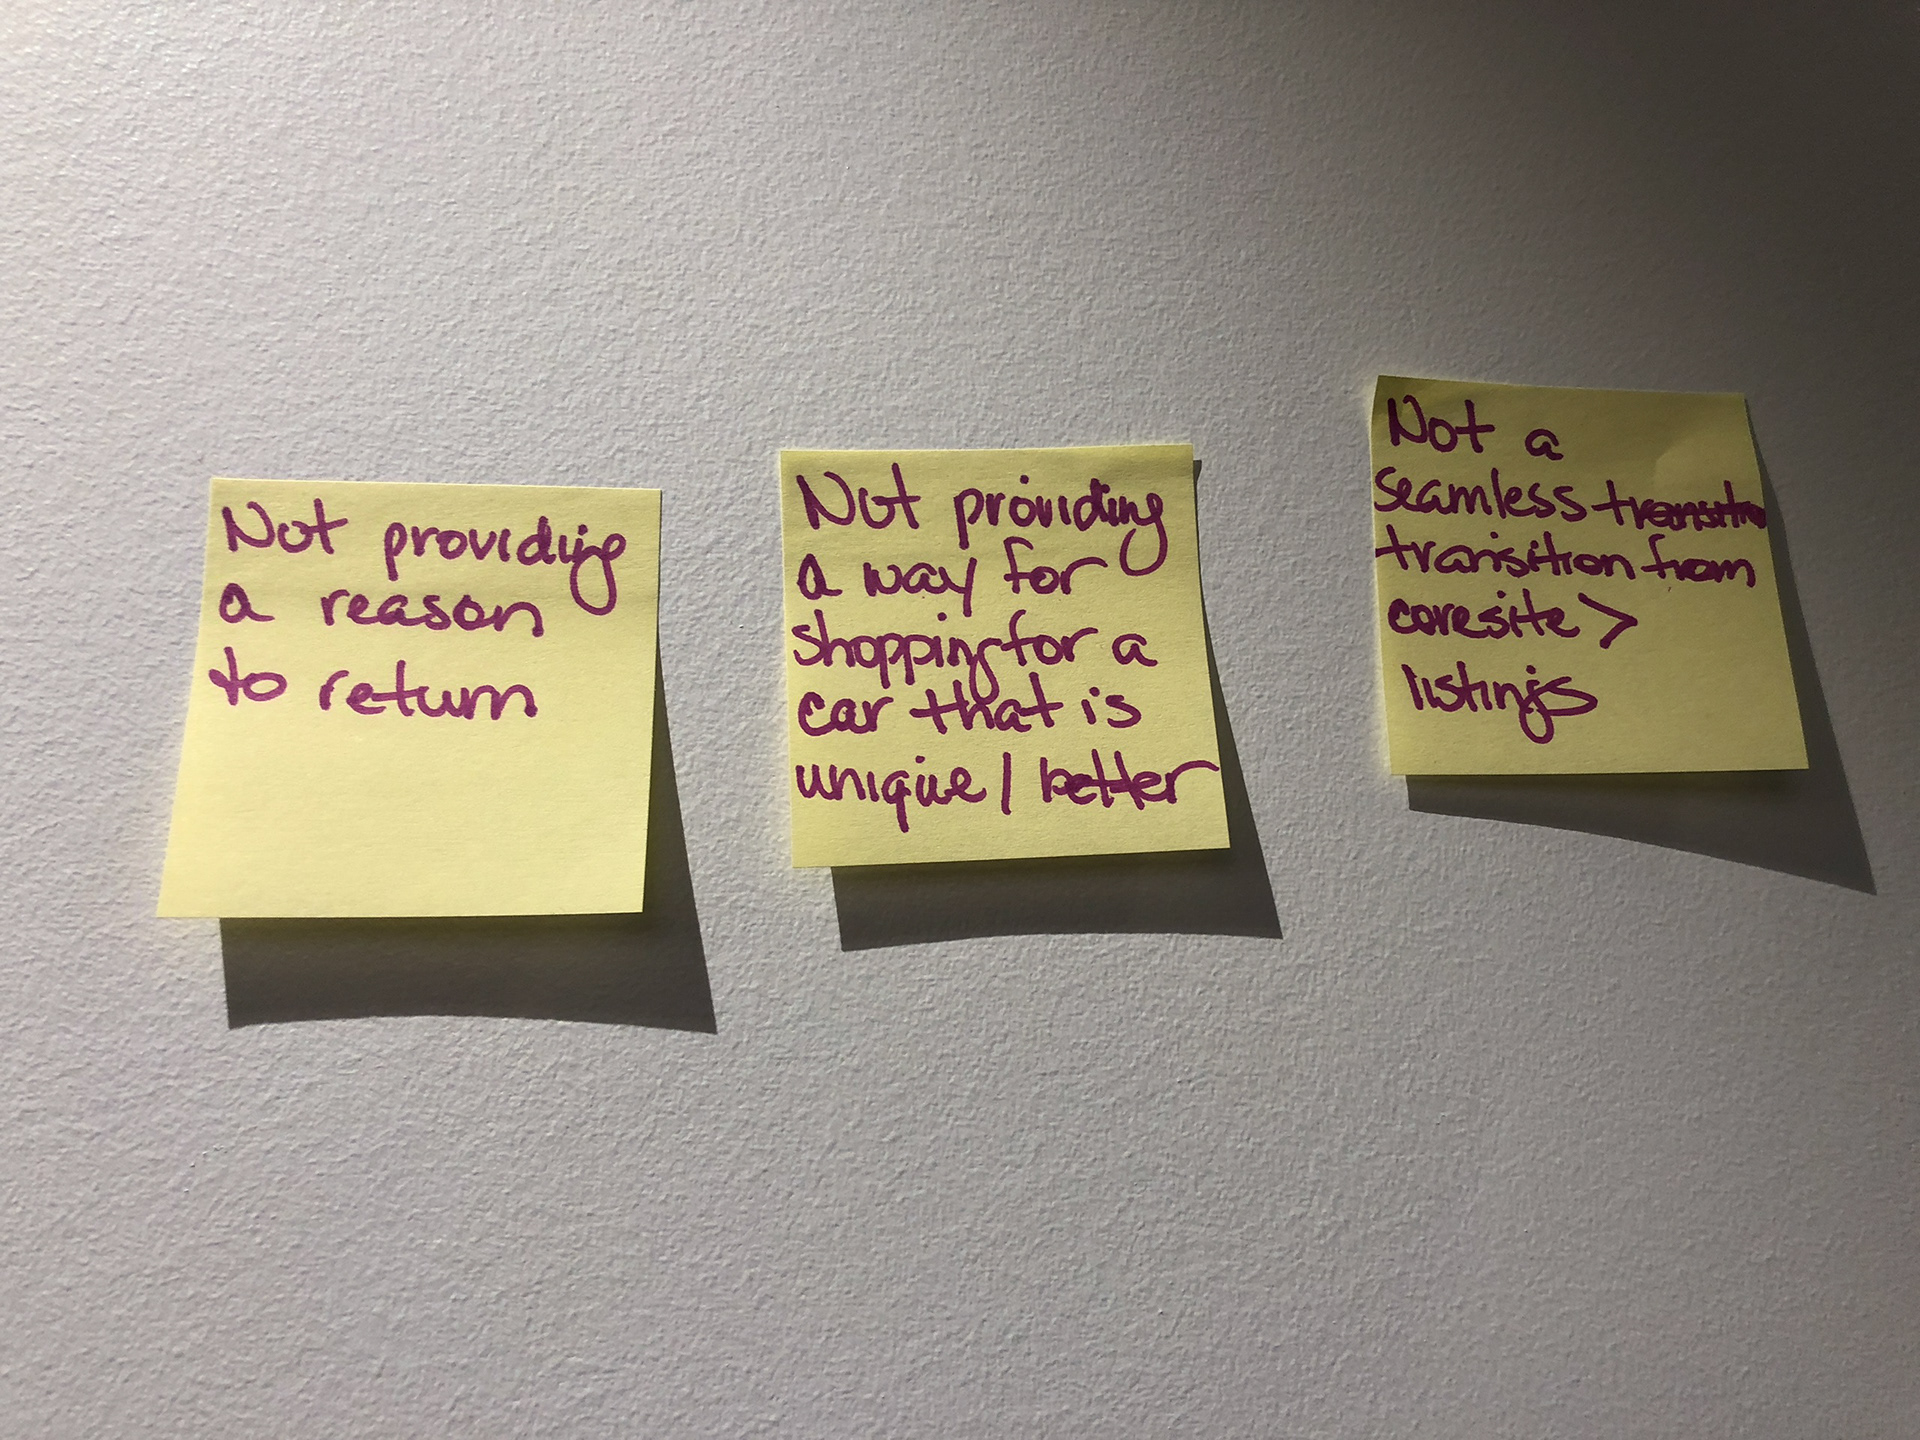 Not providing
a reason
to return
Not providing
a way for
shopping for a
car that is
unique / better
Not a
seamless transition
transition from
coresite >
listings